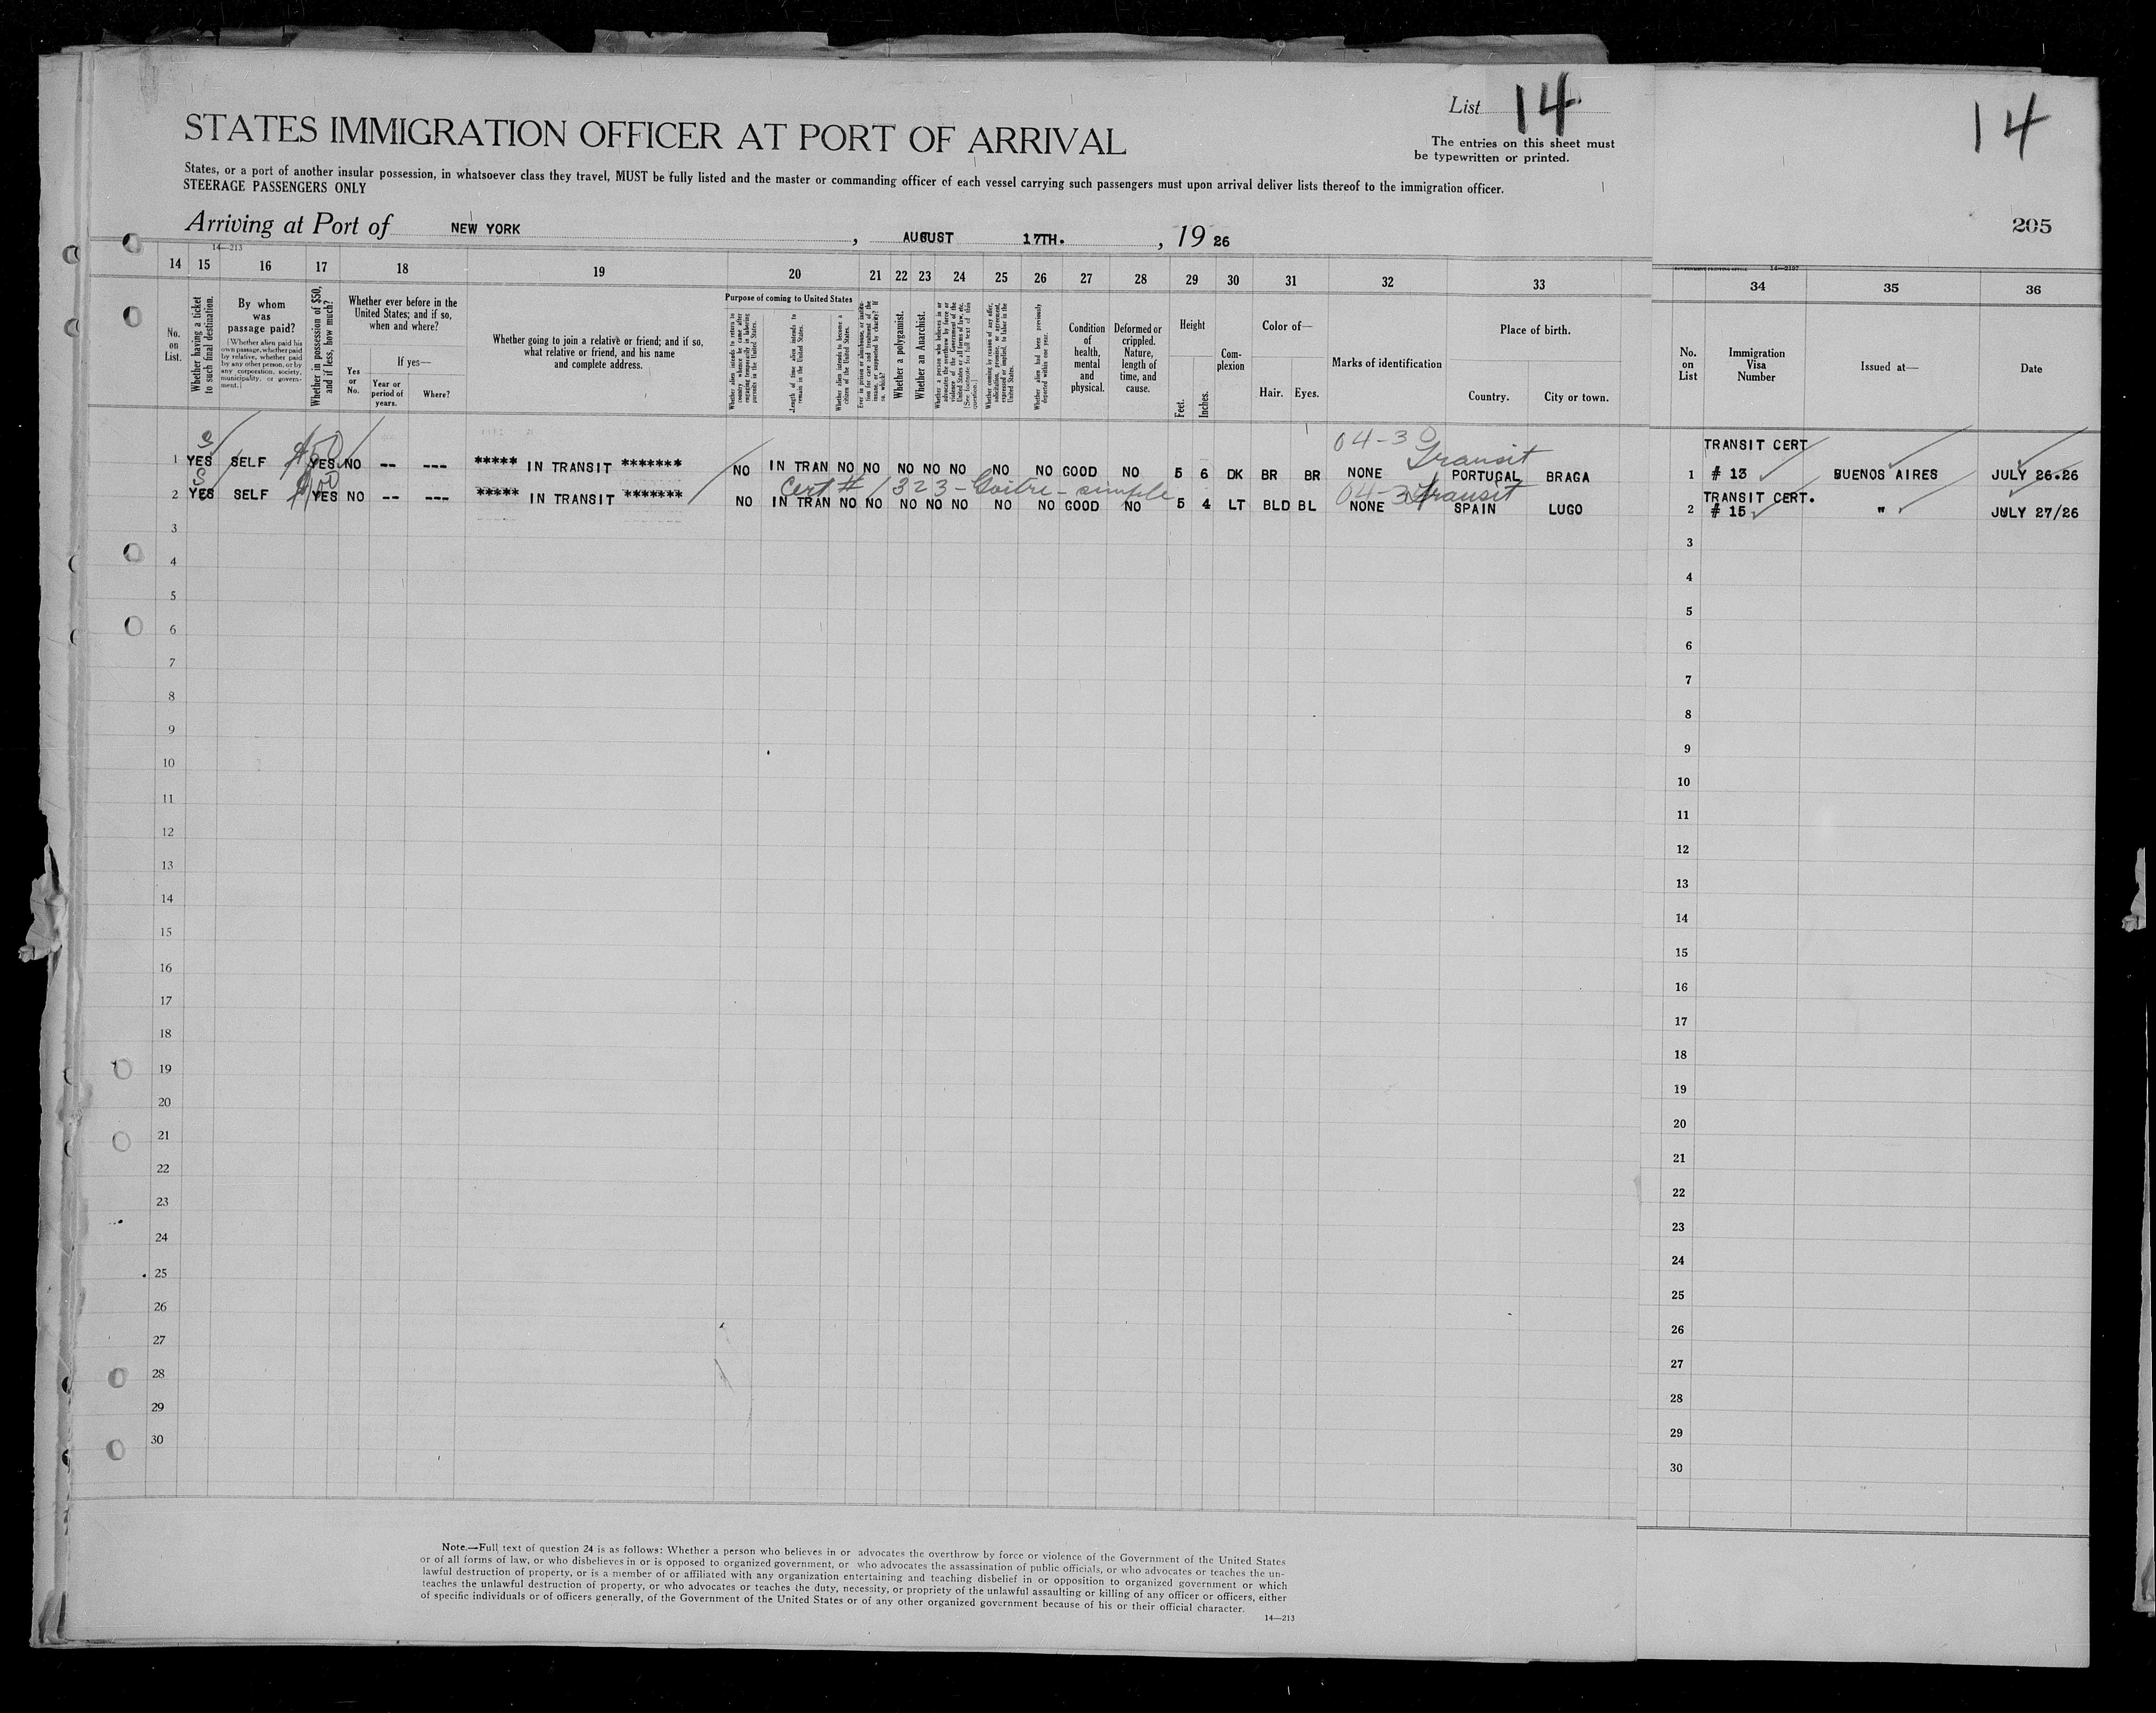 List 14
14
STATES IMMIGRATION OFFICER AT PORT OF ARRIVAL
The entries on this sheet must
be typewritten or printed.
States, or a port of another insular possession, in whatsoever class they travel, MUST be fully listed and the master or commanding officer of each vessel carrying such passengers must upon arrival deliver lists thereof to the immigration officer.
STEERAGE PASSENGERS ONLY
205
Arriving at Port of NEW YORK , AUGUST 17TH. , 19 26
14—213
14 15 16 17 18 19 20 21 22 23 24 25 26 27 28 29 30 31 32 33 34 35 36
No. on List.
Whether having a ticket to such final destination.
By whom was passage paid?
[Whether alien paid his own passage, whether paid by relative, whether paid by any other person, or by any corporation, society, municipality, or government.]
Whether in possession of $50, and if less, how much?
Whether ever before in the United States; and if so, when and where?
Yes or No.
If yes—
Year or period of years.
Where?
Whether going to join a relative or friend; and if so, what relative or friend, and his name and complete address.
Purpose of coming to United States
Whether alien intends to return to country whence he came after engaging temporarily in laboring pursuits in the United States.
Length of time alien intends to remain in the United States.
Whether alien intends to become a citizen of the United States.
Ever in prison or almshouse, or institution for care and treatment of the insane, or supported by charity? If so, which?
Whether a polygamist.
Whether an Anarchist.
Whether a person who believes in or advocates the overthrow by force or violence of the Government of the United States or all forms of law, etc. [See footnote for full text of this question.]
Whether coming by reason of any offer, solicitation, promise, or agreement, expressed or implied, to labor in the United States.
Whether alien had been previously deported within one year.
Condition of health, mental and physical.
Deformed or crippled. Nature, length of time, and cause.
Height
Feet.
Inches.
Complexion
Color of—
Hair. Eyes.
Marks of identification
Place of birth.
Country. City or town.
No. on List
Immigration Visa Number
Issued at—
Date
S 04-30 Transit TRANSIT CERT
1 YES SELF $50 YES NO -- --- ***** IN TRANSIT ******* NO IN TRAN NO NO NO NO NO NO NO GOOD NO 5 6 DK BR BR NONE PORTUGAL BRAGA 1 # 13 BUENOS AIRES JULY 26.26
S Cert # 1323 - Goitre - simple 04-3 Transit TRANSIT CERT.
2 YES SELF YES NO -- --- ***** IN TRANSIT ******* NO IN TRAN NO NO NO NO NO NO NO GOOD NO 5 4 LT BLD BL NONE SPAIN LUGO 2 # 15 " JULY 27/26
3 3
4 4
5 5
6 6
7 7
8 8
9 9
10 10
11 11
12 12
13 13
14 14
15 15
16 16
17 17
18 18
19 19
20 20
21 21
22 22
23 23
24 24
25 25
26 26
27 27
28 28
29 29
30 30
Note.—Full text of question 24 is as follows: Whether a person who believes in or advocates the overthrow by force or violence of the Government of the United States
or of all forms of law, or who disbelieves in or is opposed to organized government, or who advocates the assassination of public officials, or who advocates or teaches the un-
lawful destruction of property, or is a member of or affiliated with any organization entertaining and teaching disbelief in or opposition to organized government or which
teaches the unlawful destruction of property, or who advocates or teaches the duty, necessity, or propriety of the unlawful assaulting or killing of any officer or officers, either
of specific individuals or of officers generally, of the Government of the United States or of any other organized government because of his or their official character.
14—213